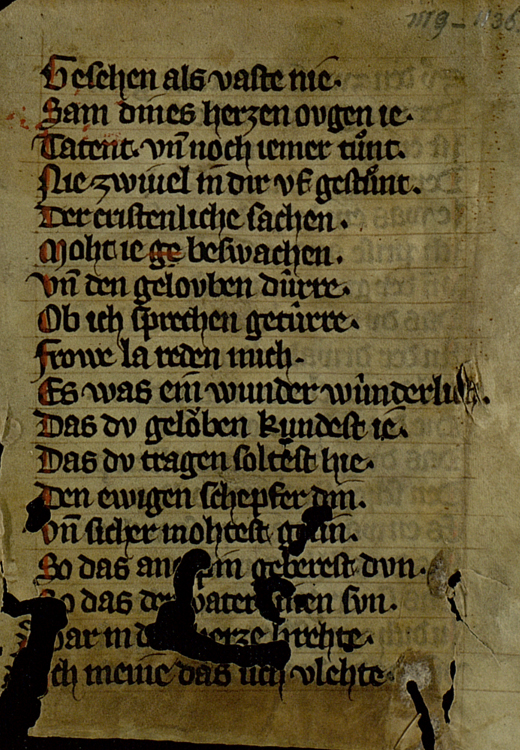 Gesehen als vaste nie.
Sam dines herzen ovgen ie.
Tatent. vn̄ noch iemer tuͦnt.
Nie zwiuel in dir vf gestuͦnt.
Der cristenliche sachen.
Moht ie ge beswachen.
Vn̄ den gelovben dûrre.
Ob ich sprechen getûrre.
Frowe la reden mich.
Es was ein wunder wûnderlich.
Das dv gelôben kundest ie.
Das dv tragen soltest hie.
Den ewigen schepfer din.
Vn̄ sicher mohtest
So das geberest dvn.
So das vater sun.
in herze
Ich meine das vlehte